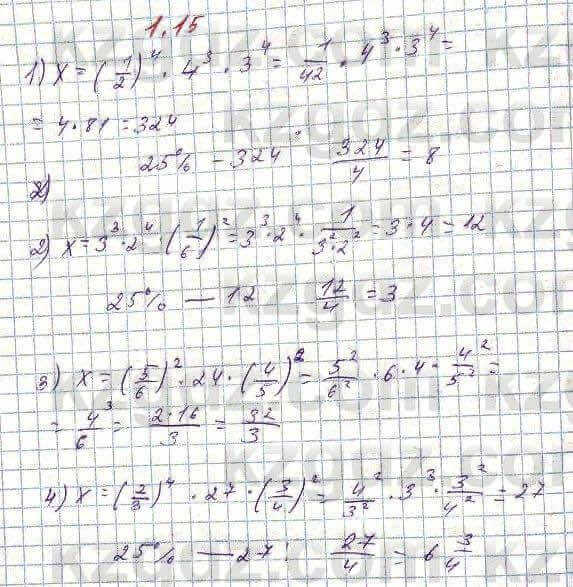 1.15
1) x = (1/2)^4 · 4^3 · 3^4 = 1/42 · 4^3 · 3^4 =
= 4 · 81 = 324
25% - 324 324/4 = 8
2)
2) x = 3^3 · 2^4 · (1/6)^2 = 3^3 · 2^4 · 1/(3^2 · 2^2) = 3 · 4 = 12
25% — 12 12/4 = 3
3) x = (5/6)^2 · 24 · (4/5)^2 = 5^2/6^2 · 6 · 4 · 4^2/5^2 =
= 4^3/6 = 2·16/3 = 32/3
4) x = (2/3)^4 · 27 · (3/4)^2 = 4^2/3^2 · 3^3 · 3^2/4^2 = 27
25% — 27 : 27/4 = 6 3/4